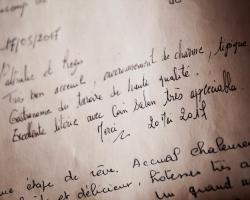 17/05/2017
Très bon accueil, environnement de charme, typique
Gastronomie du terroir de haute qualité.
Excellente literie avec Coin Salon très appréciable.
Merci 20 Mai 2017
une étape de rêve. Accueil chaleureux
et délicieux, hôtesses très a
Un grand